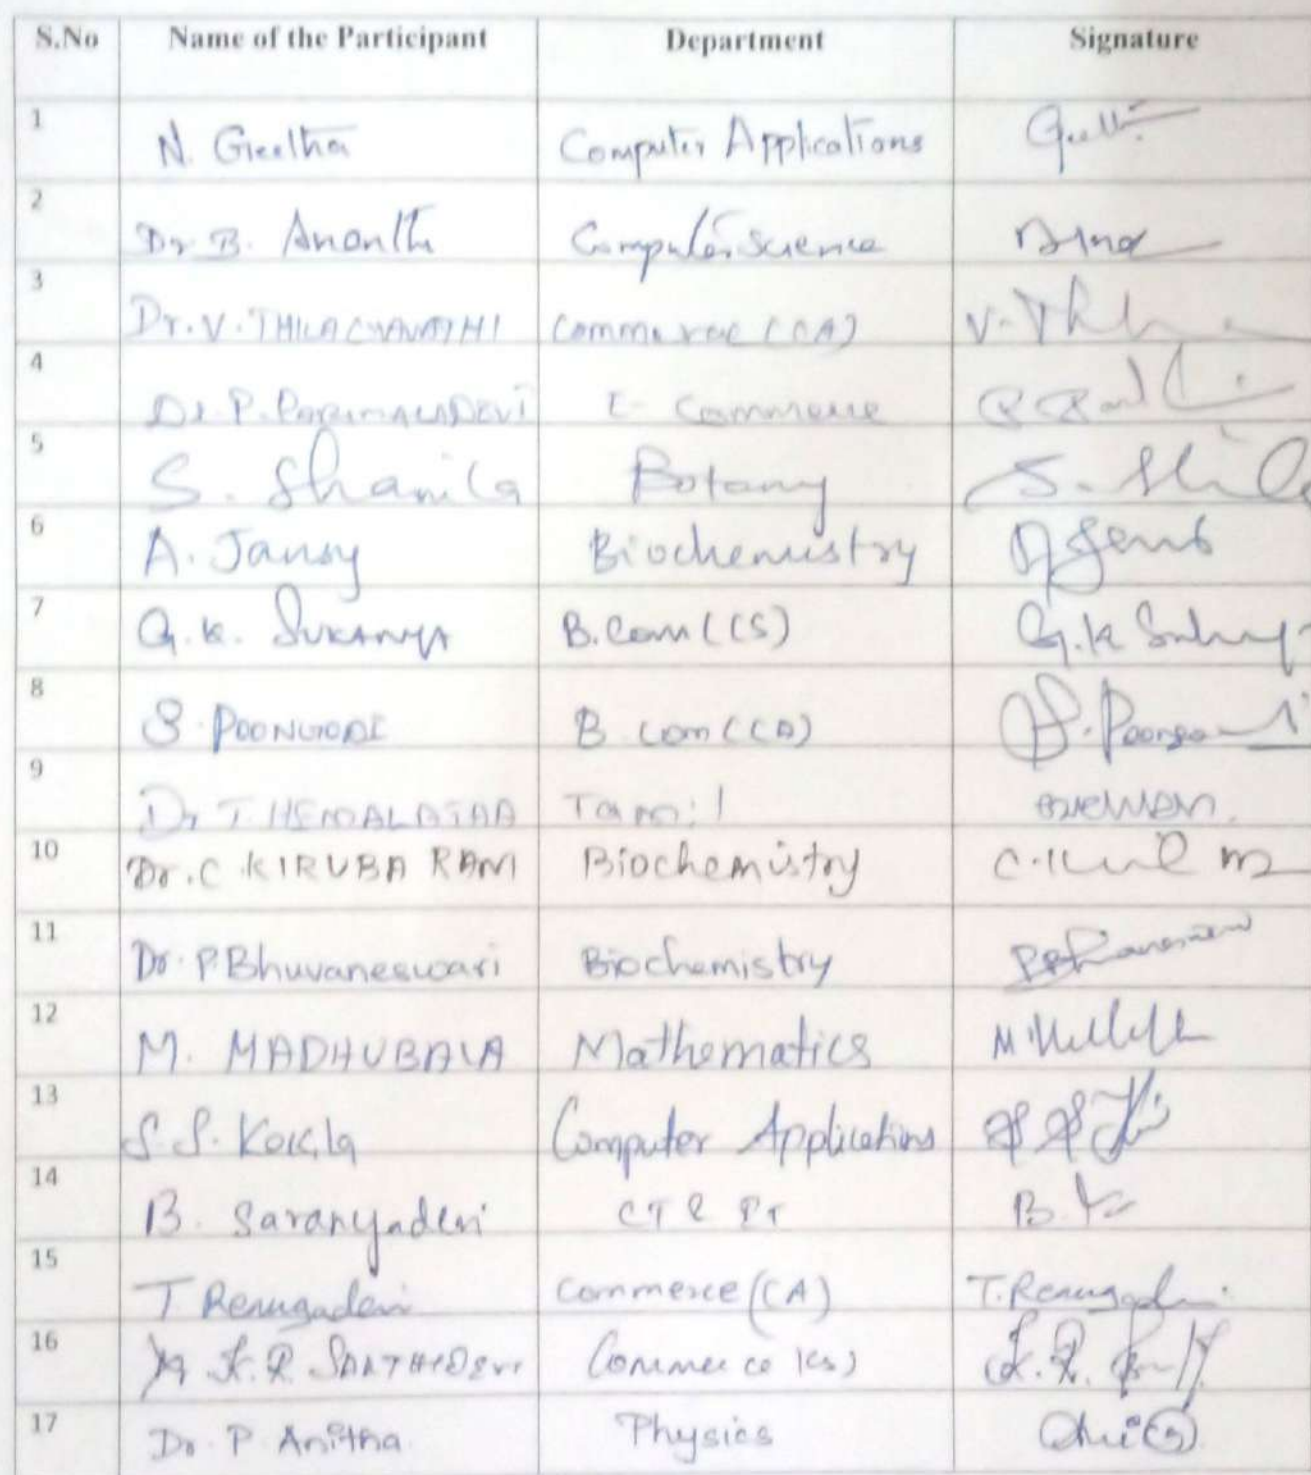 S.No Name of the Participant Department Signature
1 N. Geetha Computer Applications
2 Dr B. Ananth Computer Science
3 Dr. V. THILAGAVATHI Commerce (CA) V.
4 Dr. P. PARIMALADEVI E-Commerce
5 S. Shamila Botany S.
6 A. Jansy Biochemistry
7 G.K. SUKANYA B.Com (CS) G.K
8 S. POONGODI B.com (CA) S.
9 Dr T. HEMALATHA Tamil
10 Dr. C. KIRUBA RANI Biochemistry C.
11 Dr. P. Bhuvaneswari Biochemistry
12 M. MADHUBALA Mathematics M
13 S. S. Kokila Computer Applications
14 B. Saranyadevi B.
15 T Renugadevi Commerce (CA) T. Renugadevi
16 K. R. Commerce (CS) K. R.
17 Dr. P Anitha Physics